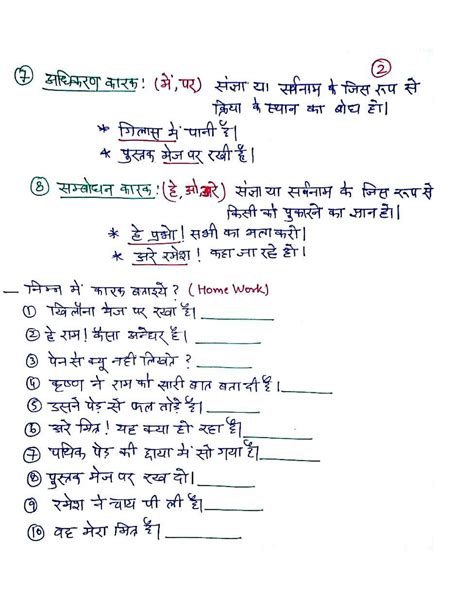 2
7 अधिकरण कारक! (में, पर) संज्ञा या सर्वनाम के जिस रूप से
क्रिया के स्थान का बोध हो।
* गिलास में पानी है।
* पुस्तक मेज पर रखी है।
8 सम्बोधन कारक! (हे, ओ, अरे) संज्ञा या सर्वनाम के जिस रूप से
किसी को पुकारने का ज्ञान हो।
* हे प्रभो! सभी का भला करो।
* अरे रमेश! कहा जा रहे हो।
— निम्न में कारक बताइये? (Home Work)
1 खिलौना मेज पर रखा है। ________
2 हे राम! कैसा अन्धेर है। ________
3 पेन से क्यू नहीं लिखते? ________
4 कृष्ण ने राम को सारी बात बता दी है। ________
5 उसने पेड़ से फल तोड़े है। ________
6 अरे मित्र! यह क्या हो रहा है। ________
7 पथिक पेड़ की छाया में सो गया है। ________
8 पुस्तक मेज पर रख दो। ________
9 रमेश ने चाय पी ली है। ________
10 वह मेरा मित्र है। ________